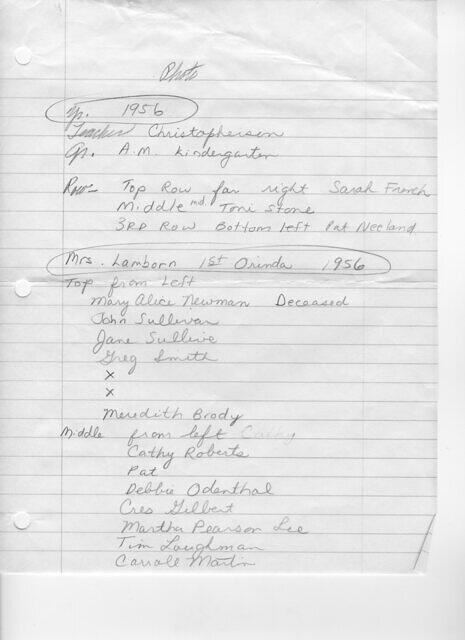 Photo
Yr. 1956
Teacher Christopherson
Gr. A.M. Kindergarten
Row- Top Row far right Sarah French
Middle md. Toni Stone
3RD Row Bottom left Pat Neeland
Mrs. Lamborn 1st Orinda 1956
Top from Left
Mary Alice Newman Deceased
John Sullivan
Jane Sullive
Greg Smith
x
x
Meredith Brody
Middle from left Cathy
Cathy Roberts
Pat
Debbie Odenthal
Cres Gilbert
Martha Pearson Lee
Tim Loughman
Carrole Martin